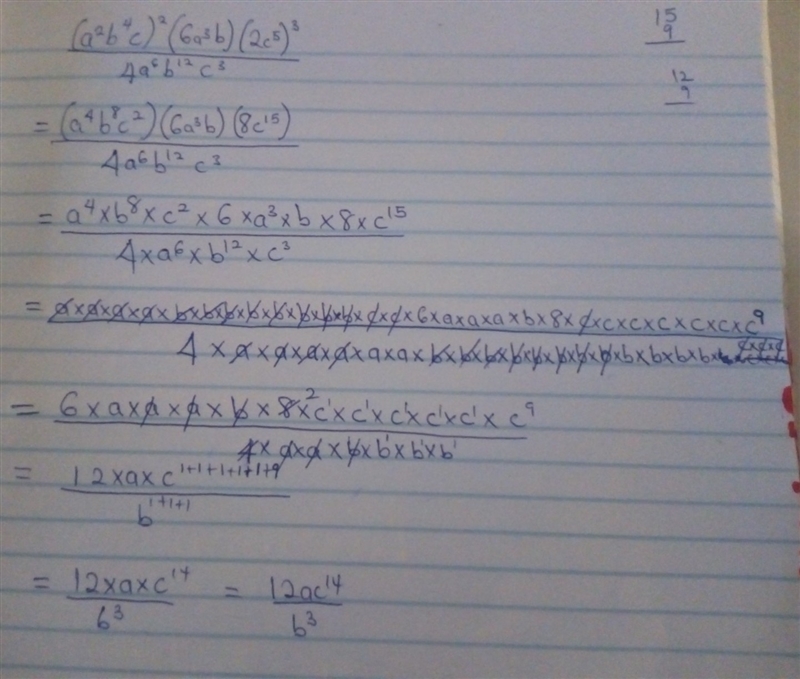 (a²b⁴c)²(6a³b)(2c⁵)³
4a⁶b¹²c³
15
9
12
9
= (a⁴b⁸c²)(6a³b)(8c¹⁵)
4a⁶b¹²c³
= a⁴×b⁸×c²×6×a³×b×8×c¹⁵
4×a⁶×b¹²×c³
= a×a×a×a×b×b×b×b×b×b×b×b×c×c×6×a×a×a×b×8×c×c×c×c×c×c×c⁹
4×a×a×a×a×a×a×b×b×b×b×b×b×b×b×b×b×b×b c×c×c
= 6×a×a×a×b×8²×c¹×c¹×c¹×c¹×c¹×c⁹
4×a×a×b×b¹×b¹×b¹
= 12×a×c¹⁺¹⁺¹⁺¹⁺¹⁺⁹
b¹⁺¹⁺¹
= 12×a×c¹⁴ = 12ac¹⁴
b³ b³